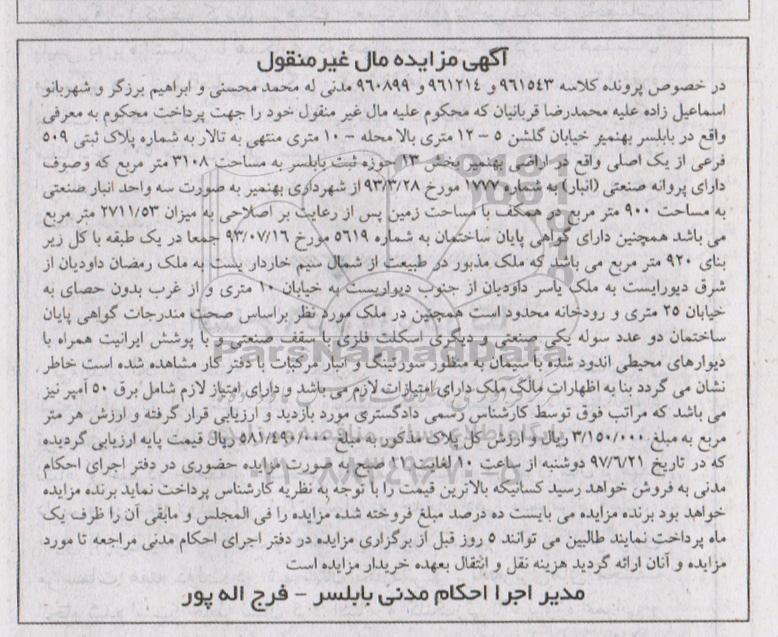 آگهی مزایده مال غیر منقول
در خصوص پرونده کلاسه ۹۶۱۵۴۳ و ۹۶۱۲۱۴ و ۹۶۰۸۹۹ مدنی له محمد محسنی و ابراهیم برزگر و شهربانو
اسماعیل زاده علیه محمدرضا قربانیان که محکوم علیه مال غیر منقول خود را جهت پرداخت محکوم به معرفی
واقع در بابلسر بهنمیر خیابان گلشن ۵ – ۱۲ متری بالا محله – ۱۰ متری منتهی به تالار به شماره پلاک ثبتی ۵۰۹
فرعی از یک اصلی واقع در اراضی بهنمیر بخش ۱۳ حوزه ثبت بابلسر به مساحت ۳۱۰۸ متر مربع که وصوف
دارای پروانه صنعتی (انبار) به شماره ۱۷۷۷ مورخ ۹۳/۳/۲۸ از شهرداری بهنمیر به صورت سه واحد انبار صنعتی
به مساحت ۹۰۰ متر مربع در همکف با مساحت زمین پس از رعایت بر اصلاحی به میزان ۲۷۱۱/۵۳ متر مربع
می باشد همچنین دارای گواهی پایان ساختمان به شماره ۵۶۱۹ مورخ ۹۳/۰۷/۱۶ جمعا در یک طبقه با کل زیر
بنای ۹۲۰ متر مربع می باشد که ملک مذبور در طبیعت از شمال سیم خاردار یست به ملک رمضان داودیان از
شرق دیورایست به ملک یاسر داودیان از جنوب دیواریست به خیابان ۱۰ متری و از غرب بدون حصای به
خیابان ۲۵ متری و رودخانه محدود است همچنین در ملک مورد نظر براساس صحت مندرجات گواهی پایان
ساختمان دو عدد سوله یکی صنعتی و دیگری اسکلت فلزی با سقف صنعتی با پوشش ایرانیت همراه با
دیوارهای محیطی اندود شده با سیمان به منظور سورتینگ و انبار مرکبات با دفتر کار مشاهده شده است خاطر
نشان می گردد بنا به اظهارات مالک ملک دارای امتیازات لازم می باشد و دارای امتیاز لازم شامل برق ۵۰ آمپر نیز
می باشد که مراتب فوق توسط کارشناس رسمی دادگستری مورد بازدید و ارزیابی قرار گرفته و ارزش هر متر
مربع به مبلغ ۳/۱۵۰/۰۰۰ ریال و ارزش کل پلاک مذکور به مبلغ ۵۸۱/۴۹۰/۰۰۰ ریال قیمت پایه ارزیابی گردیده
که در تاریخ ۹۷/۶/۲۱ دوشنبه از ساعت ۱۰ لغایت ۱۱ صبح به صورت مزایده حضوری در دفتر اجرای احکام
مدنی به فروش خواهد رسید کسانیکه بالاترین قیمت را با توجه به نظریه کارشناس پرداخت نماید برنده مزایده
خواهد بود برنده مزایده می بایست ده درصد مبلغ فروخته شده مزایده را فی المجلس و مابقی آن را ظرف یک
ماه پرداخت نمایند طالبین می توانند ۵ روز قبل از برگزاری مزایده در دفتر اجرای احکام مدنی مراجعه تا مورد
مزایده و آنان ارائه گردید هزینه نقل و انتقال بعهده خریدار مزایده است
مدیر اجرا احکام مدنی بابلسر – فرج اله پور
ParsNamadData